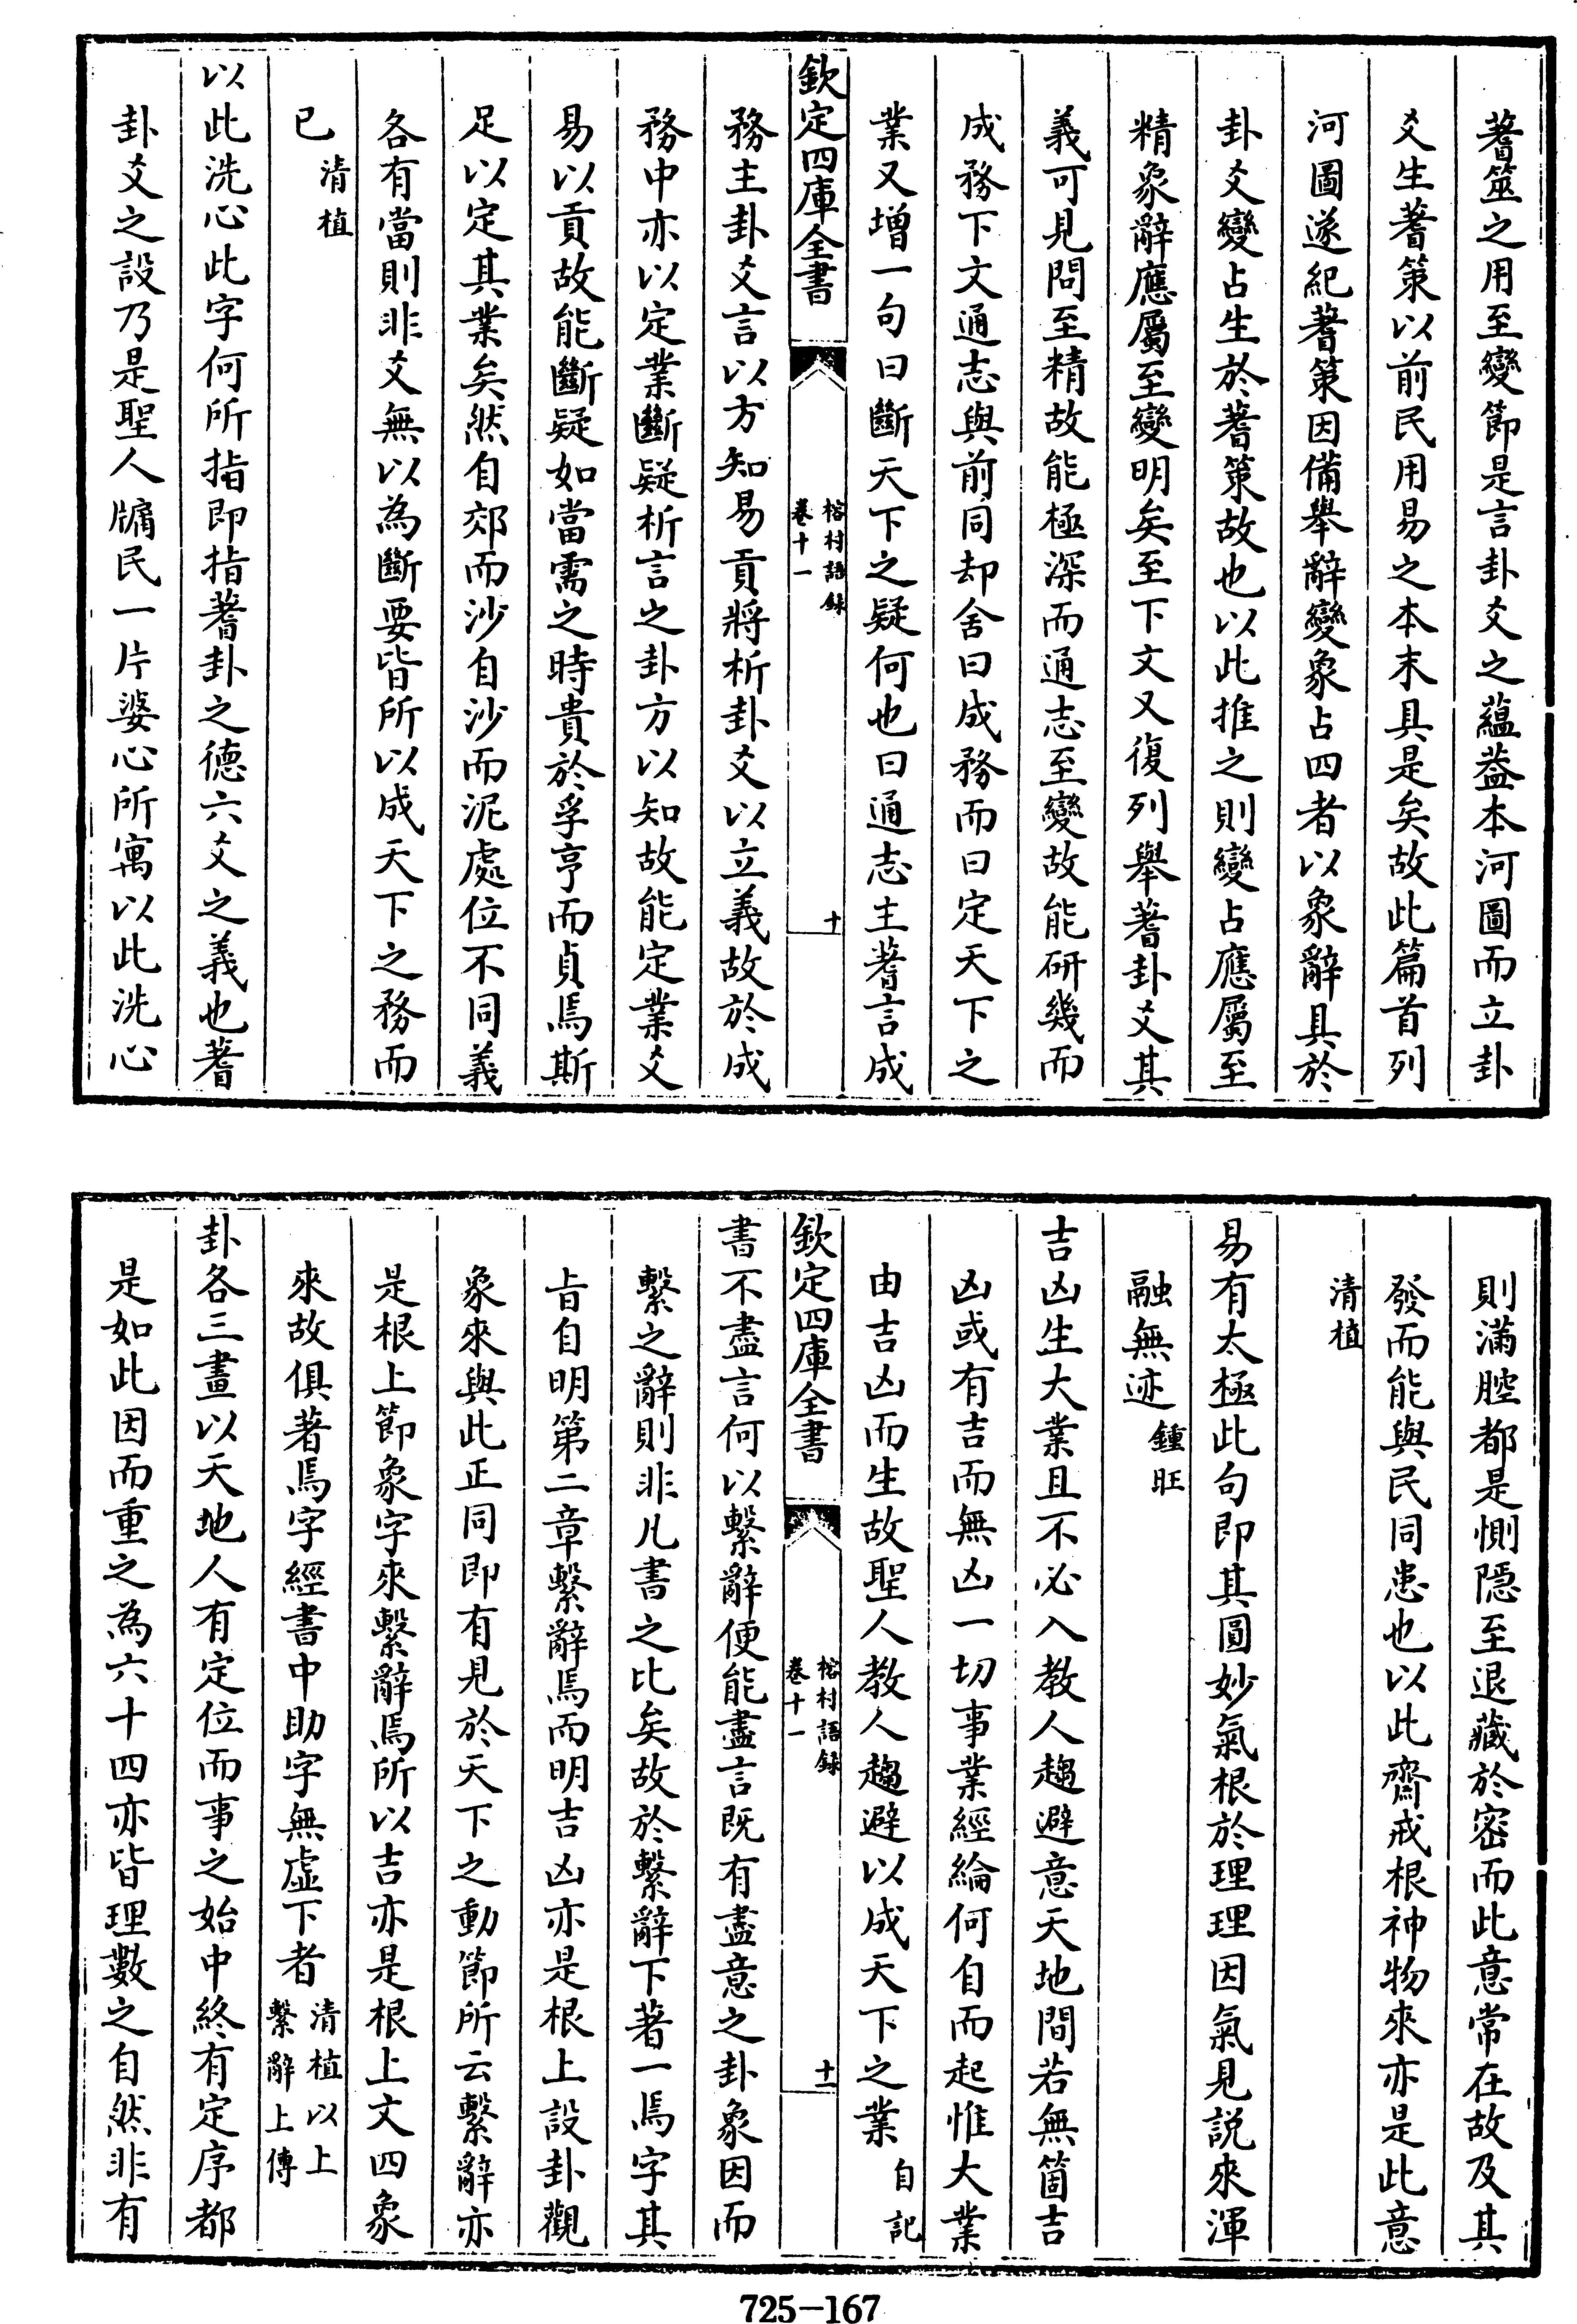 蓍筮之用至變節是言卦爻之蘊葢本河圖而立卦
爻生蓍策以前民用易之本末具是矣故此篇首列
河圖遂紀蓍策因備舉辭變象占四者以象辭具於
卦爻變占生於蓍策故也以此推之則變占應屬至
精象辭應屬至變明矣至下文又復列舉蓍卦爻其
義可見問至精故能極深而通志至變故能研幾而
成務下文通志與前同却舍曰成務而曰定天下之
業又增一句曰斷天下之疑何也曰通志主蓍言成
欽定四庫全書
榕村語録
卷十一
十
務主卦爻言以方知易貢將析卦爻以立義故於成
務中亦以定業斷疑析言之卦方以知故能定業爻
易以貢故能斷疑如當需之時貴於孚亨而貞焉斯
足以定其業矣然自郊而沙自沙而泥處位不同義
各有當則非爻無以為斷要皆所以成天下之務而
已清植
以此洗心此字何所指即指蓍卦之德六爻之義也蓍
卦爻之設乃是聖人牖民一片婆心所寓以此洗心
則滿腔都是惻隱至退藏於密而此意常在故及其
發而能與民同患也以此齋戒根神物來亦是此意
清植
易有太極此句即其圓妙氣根於理理因氣見説來渾
融無迹鍾旺
吉凶生大業且不必入教人趨避意天地間若無箇吉
凶或有吉而無凶一切事業經綸何自而起惟大業
由吉凶而生故聖人教人趨避以成天下之業自記
欽定四庫全書
榕村語録
卷十一
十一
書不盡言何以繫辭便能盡言既有盡意之卦象因而
繫之辭則非凡書之比矣故於繫辭下著一焉字其
旨自明第二章繫辭焉而明吉凶亦是根上設卦觀
象來與此正同即有見於天下之動節所云繫辭亦
是根上節象字來繫辭焉所以吉亦是根上文四象
來故俱著焉字經書中助字無虚下者清植以上
繫辭上傳
卦各三畫以天地人有定位而事之始中終有定序都
是如此因而重之為六十四亦皆理數之自然非有
725-167